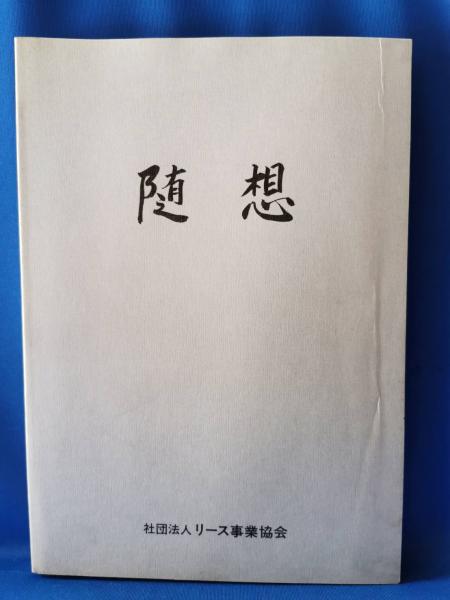 随想
社団法人リース事業協会